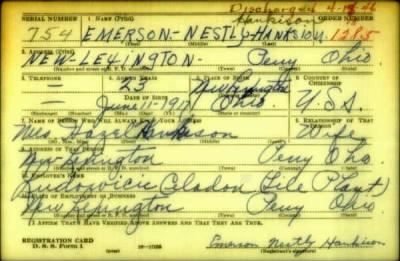 Discharged 4-18-46
Hankison
SERIAL NUMBER 1. NAME (Print) ORDER NUMBER
754 EMERSON - NESTLY - HANKISON 1285
2. ADDRESS (Print)
NEW-LEXINGTON - Perry Ohio
(Number and street or R. F. D. number) (Town) (County) (State)
3. TELEPHONE 4. AGE IN YEARS 5. PLACE OF BIRTH 6. COUNTRY OF CITIZENSHIP
— 23 New Lexington
DATE OF BIRTH
— June-11-1917 Ohio. U.S.A.
7. NAME OF PERSON WHO WILL ALWAYS KNOW YOUR ADDRESS 8. RELATIONSHIP OF THAT PERSON
Mrs Hazel Hankison Wife
9. ADDRESS OF THAT PERSON
New Lexington Perry Ohio
(Number and street or R. F. D. number) (Town) (County) (State)
10. EMPLOYER'S NAME
Ludowici Celadon (Tile Plant)
11. PLACE OF EMPLOYMENT OR BUSINESS
New Lexington Perry Ohio
(Number and street or R. F. D. number) (Town) (County) (State)
I AFFIRM THAT I HAVE VERIFIED ABOVE ANSWERS AND THAT THEY ARE TRUE.
REGISTRATION CARD
D. S. S. Form 1 Emerson Nestly Hankison